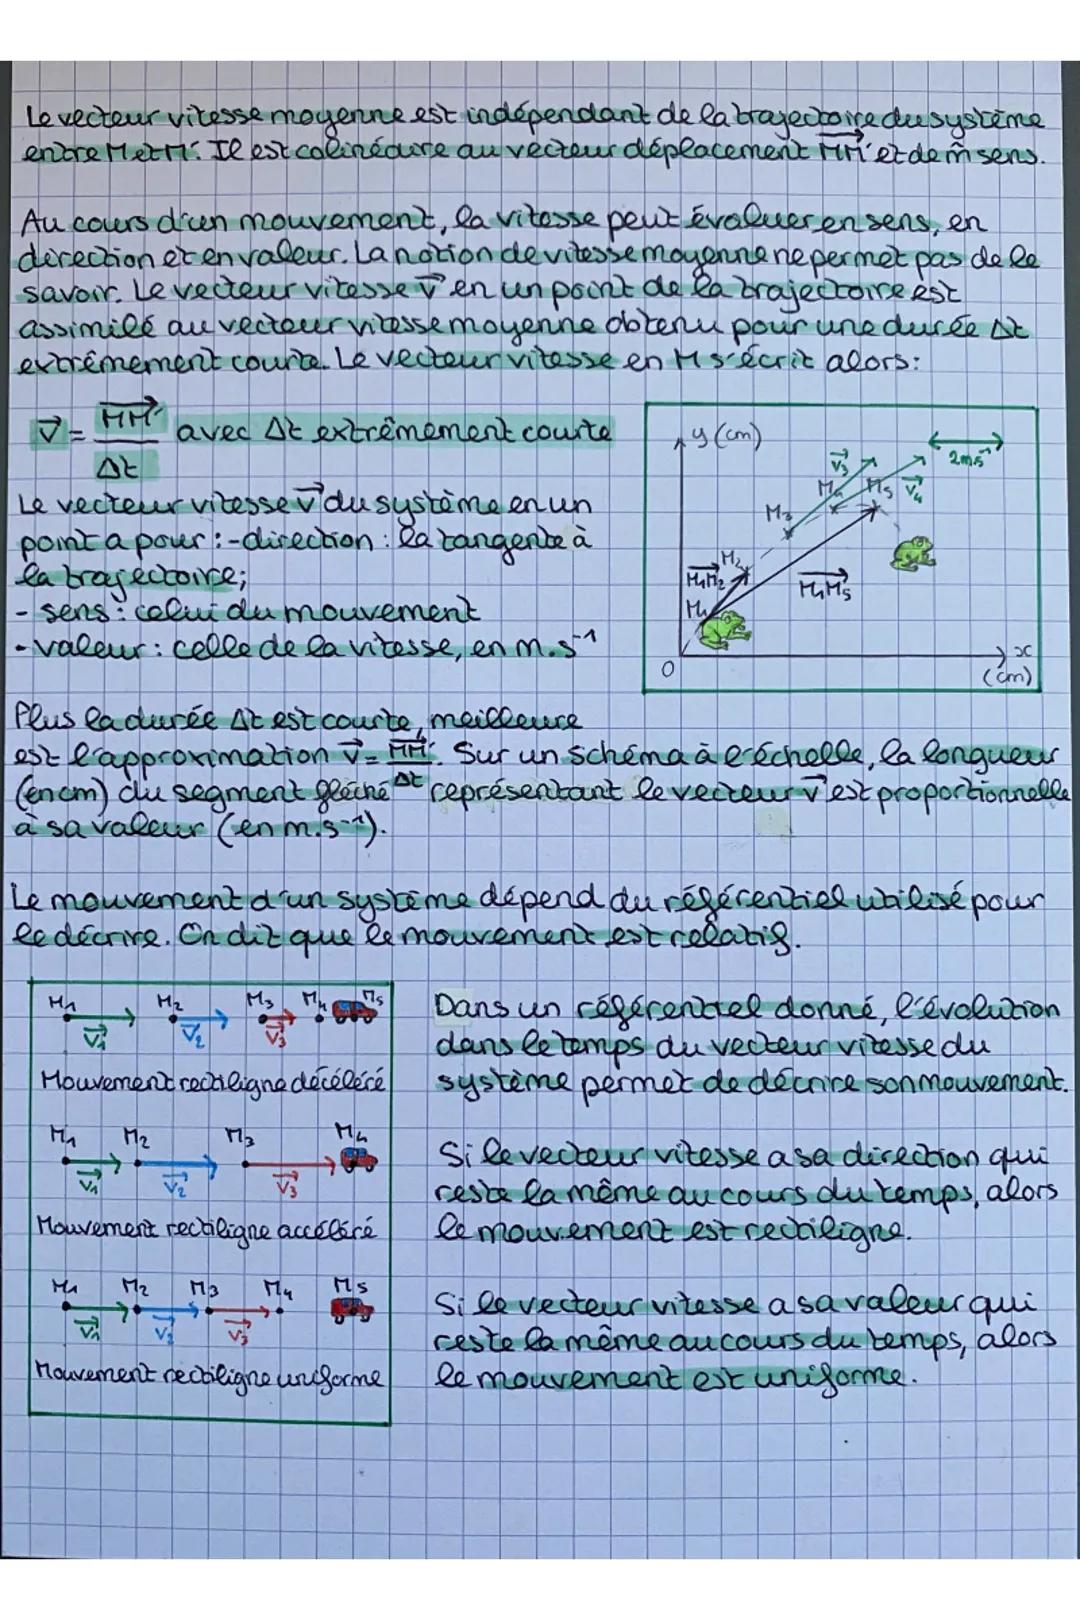 Le vecteur vitesse moyenne est indépendant de la trajectoire du système
entre M et M'. Il est colinéaire au vecteur déplacement MM' et de m̂ sens.
Au cours d'un mouvement, la vitesse peut évoluer en sens, en
direction et en valeur. La notion de vitesse moyenne ne permet pas de le
savoir. Le vecteur vitesse v⃗ en un point de la trajectoire est
assimilé au vecteur vitesse moyenne obtenu pour une durée Δt
extrêmement courte. Le vecteur vitesse en M s'écrit alors:
v⃗ = MM'/Δt avec Δt extrêmement courte
Le vecteur vitesse v⃗ du système en un
point a pour : - direction : la tangente à
la trajectoire;
- sens : celui du mouvement
- valeur : celle de la vitesse, en m.s⁻¹
y (cm)
2m.s⁻¹
v⃗₃
M₄
M₅
v⃗₄
M₃
M₂
M₁M₂
M₁M₅
M₁
O
x
(cm)
Plus la durée Δt est courte, meilleure
est l'approximation v⃗ = MM'/Δt. Sur un schéma à l'échelle, la longueur
(en cm) du segment fléché représentant le vecteur v⃗ est proportionnelle
à sa valeur (en m.s⁻¹).
Le mouvement d'un système dépend du référentiel utilisé pour
le décrire. On dit que le mouvement est relatif.
M₁ M₂ M₃ M₄ M₅
v⃗₁ v⃗₂ v⃗₃
Mouvement rectiligne décéléré
M₁ M₂ M₃ M₄
v⃗₁ v⃗₂ v⃗₃
Mouvement rectiligne accéléré
M₁ M₂ M₃ M₄ M₅
v⃗₁ v⃗₂ v⃗₃
Mouvement rectiligne uniforme
Dans un référentiel donné, l'évolution
dans le temps du vecteur vitesse du
système permet de décrire son mouvement.
Si le vecteur vitesse a sa direction qui
reste la même au cours du temps, alors
le mouvement est rectiligne.
Si le vecteur vitesse a sa valeur qui
reste la même au cours du temps, alors
le mouvement est uniforme.